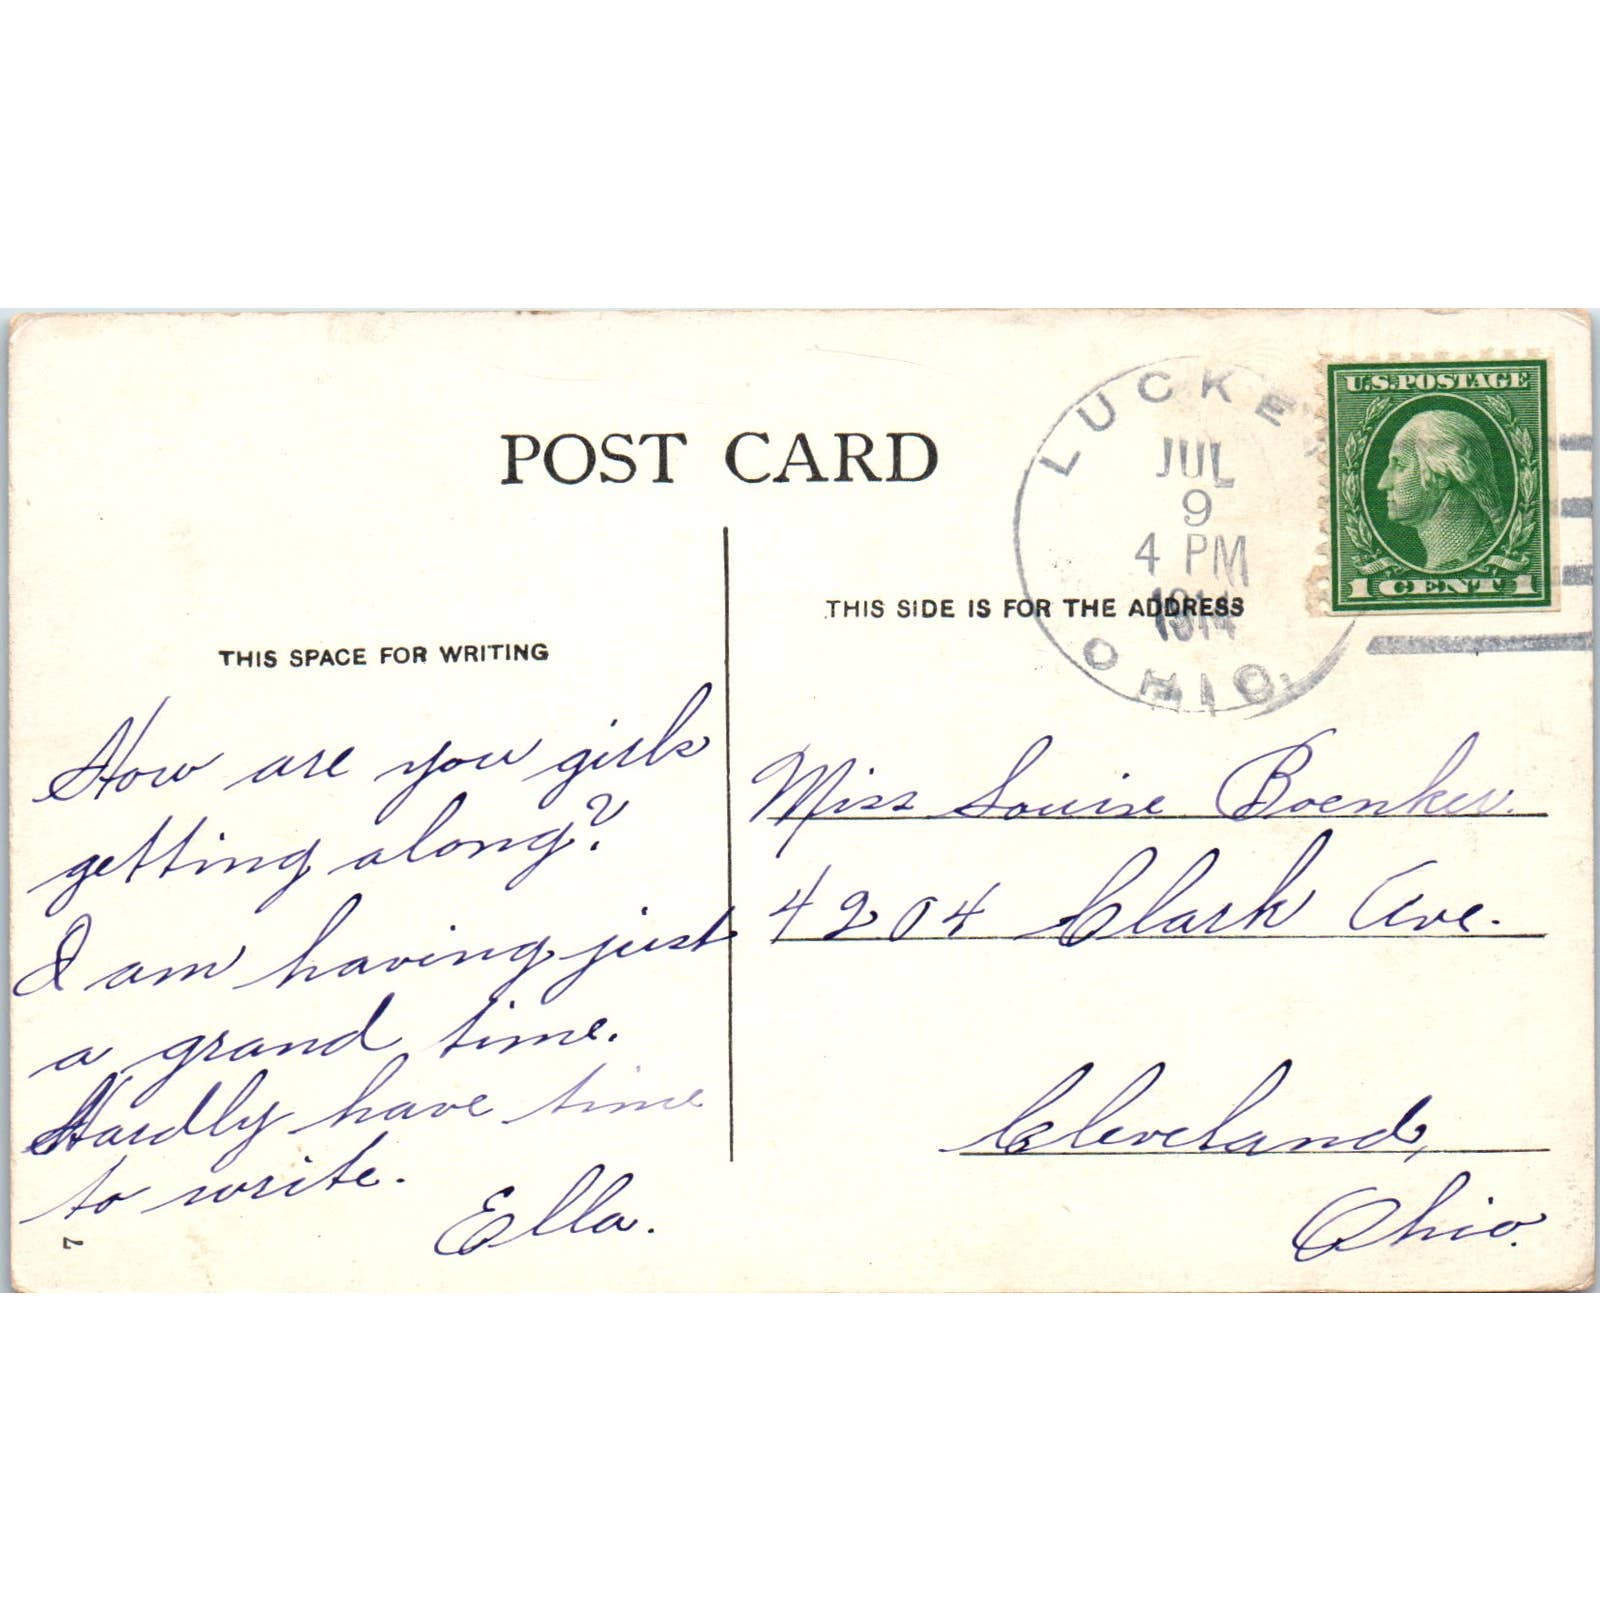 POST CARD
THIS SPACE FOR WRITING
How are you girls
getting along?
I am having just
a grand time.
Hardly have time
to write.
Ella.
7
THIS SIDE IS FOR THE ADDRESS
LUCKEY
JUL
9
4 PM
1914
OHIO.
U.S. POSTAGE
1 CENT 1
Miss Louise Boenker.
4204 Clark Ave.
Cleveland,
Ohio.